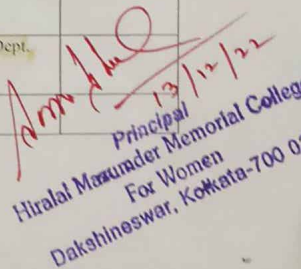 Dept.
13/12/22
Principal
Hiralal Mazumder Memorial College
For Women
Dakshineswar, Kolkata-700 0